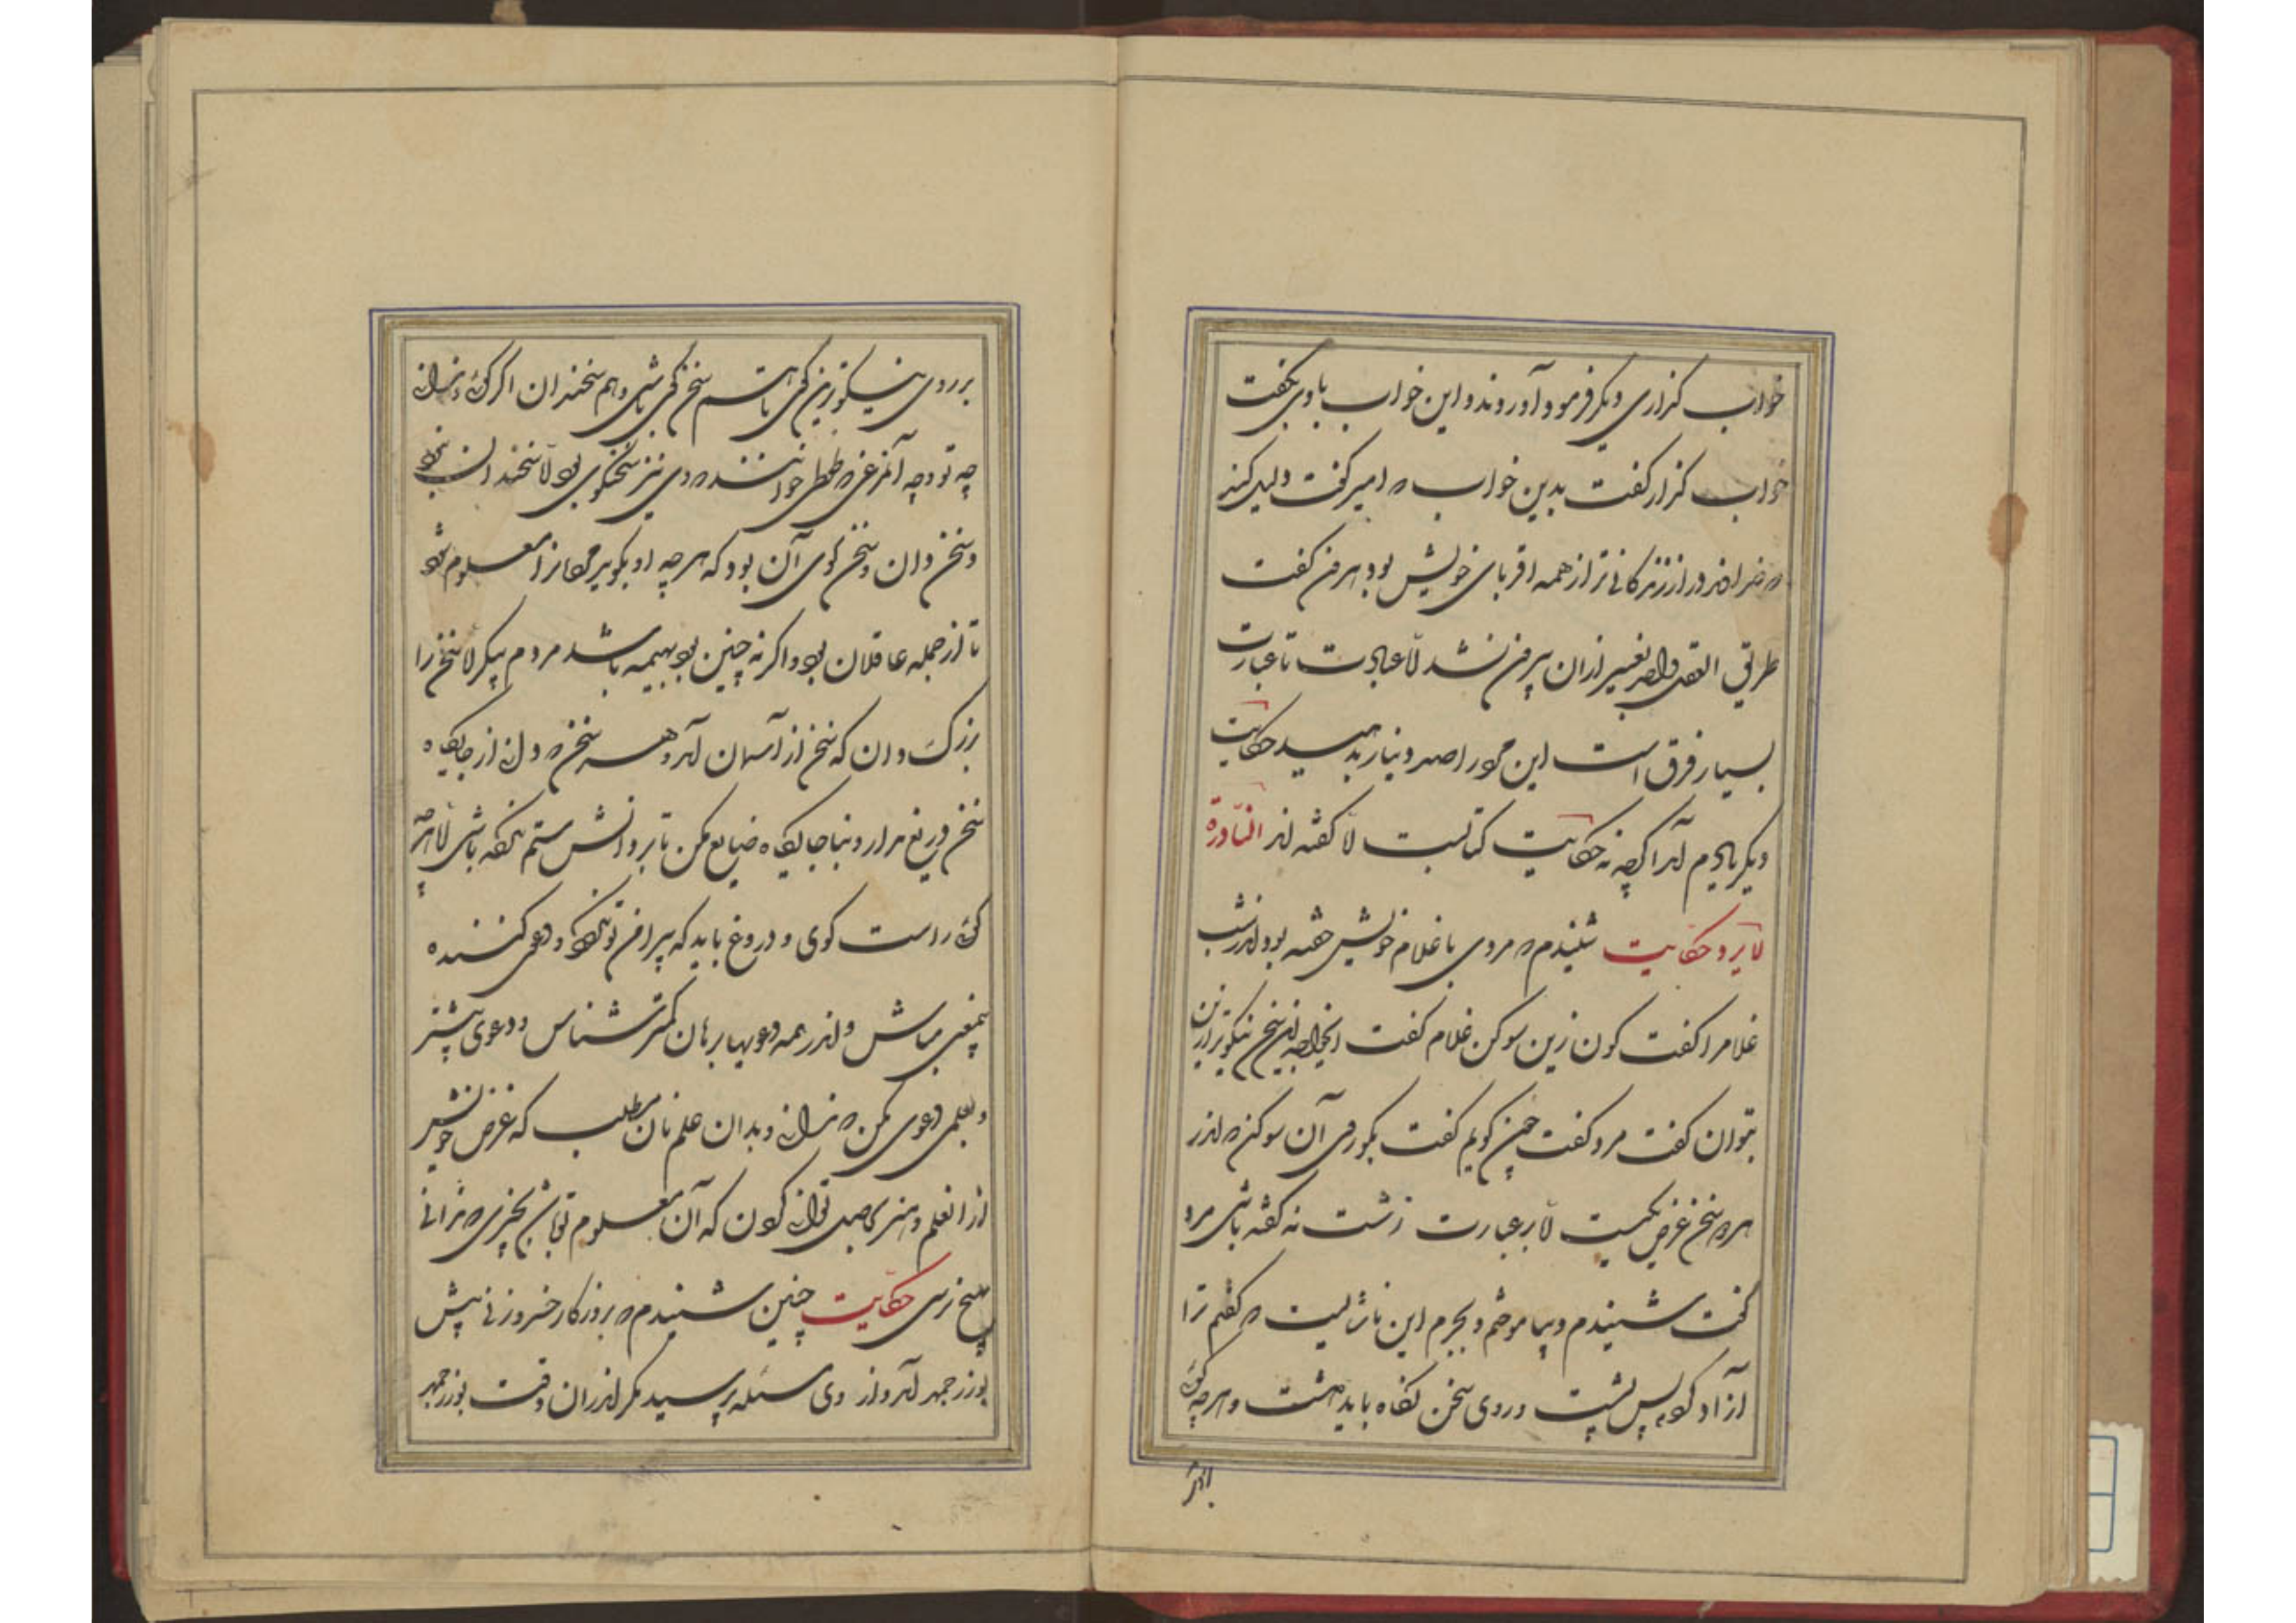 خواب گزاری دیگر فرمود آوردند و این خواب با وی بگفت
خواب گزار گفت بدین خواب که امیر گفت دلیل کند
که خداوند دراز زندگانی تر از همه اقربای خویش بود هرون گفت
طریق العقل واحد تعبیر ازان بیرون نشد اما عبارت تا عبارت
بسیار فرق است این مرد را صد دینار بدهید حکایت
دیگر یادم آمد اگرچه نه حکایت کتابست اما گفته اند النادرة
لا یرد حکایت شنیدم که مردی با غلام خویش خفته بود اندر شب
غلام را گفت کون زین سو کن غلام گفت ایخواجه این سخن نیکوتر ازین
بتوان گفت مرد گفت چون گویم گفت بگو روی از آن سو کن که اندر
هر دو سخن غرض یکیست اما بر عبارت زشت نه گفته باشی مرد
گفت شنیدم و بیاموختم و بجرم این ناشایست که گفتم ترا
آزاد کردم پس پشت و روی سخن نگاه باید داشت و هرچه گوئی
بر روی
بر روی نیکوترین گوی تا هم سخن گوی باشی و هم سخندان اگر گوئی و ندانی
چه تو و چه آنمرغی که طوطی خوانند که وی نیز سخنگوی بود اما سخندان نبود
و سخن دان و سخن گوی آن بود که هرچه او بگوید مردمانرا معلوم شود
تا از جمله عاقلان بود و اگر نه چنین بود بهیمه باشد مردم پیکر اما سخن را
بزرگ دان که سخن از آسمان آمد و هر سخن که دانی از جایگاه
سخن دریغ مدار و بنا جایگاه ضایع مکن تا بر دانش ستم نکرده باشی اما هرچه
گوئی راست گوی و دروغ باید که پیرامن تو نگردد و دعوی کننده
بیمعنی مباش و اندر همه دعویها برهان کمتر شناس و دعوی بیشتر
و بعلمی دعوی مکن که ندانی و بدان علم نان مطلب که غرض خویش
از انعلم و هنری حاصل توانی کردن که آن معلوم تو باشد و بچیزی که ندانی
بهیچ نرسی حکایت چنین شنیدم که بروزگار خسرو زنی پیش
بوزرجمهر آمد و از وی مسئله پرسید مگر اندران وقت بوزرجمهر